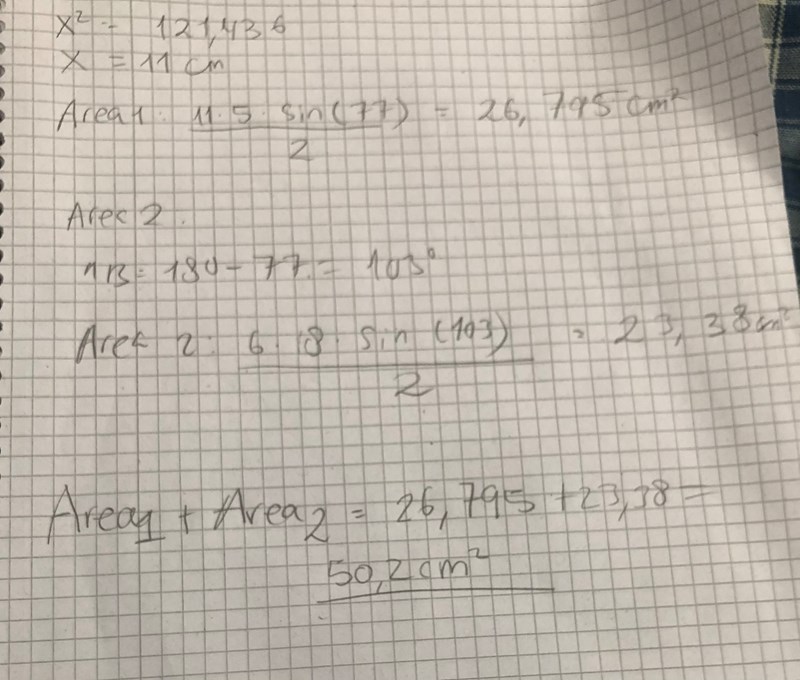 x² = 121,436
x = 11 cm
Area 1: 11·5·sin(77) = 26,795 cm²
2
Area 2.
B: 180 - 77 = 103°
Area 2: 6·8·sin(103) = 23,38 cm²
2
Area1 + Area2 = 26,795 + 23,38 =
50,2 cm²